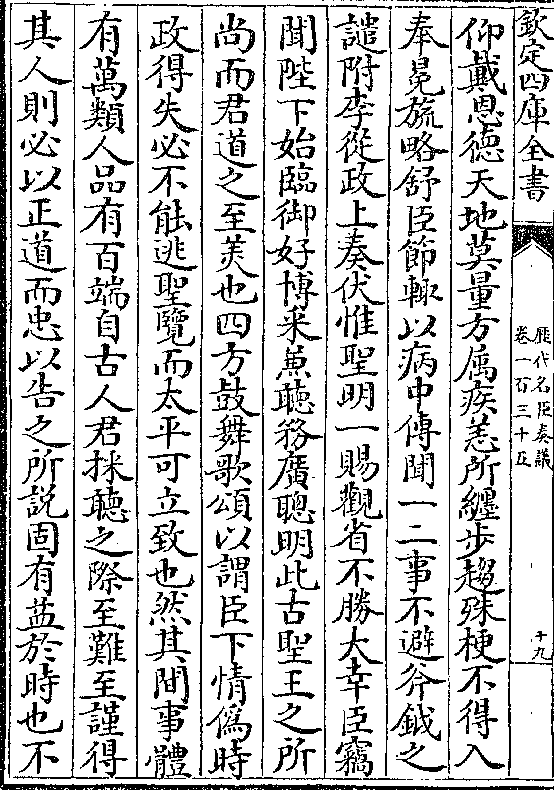 欽定四庫全書
歷代名臣奏議
卷一百三十五
十九
仰戴恩德天地莫量方屬疾恙所纏步趨殊梗不得入
奉冕旒略舒臣節輙以病中傳聞一二事不避斧鉞之
譴附李從政上奏伏惟聖明一賜觀省不勝大幸臣竊
聞陛下始臨御好博采兼聽務廣聰明此古聖王之所
尚而君道之至美也四方鼓舞歌頌以謂臣下情僞時
政得失必不能逃聖覽而太平可立致也然其間事體
有萬類人品有百端自古人君採聽之際至難至謹得
其人則必以正道而忠以告之所説固有益於時也不